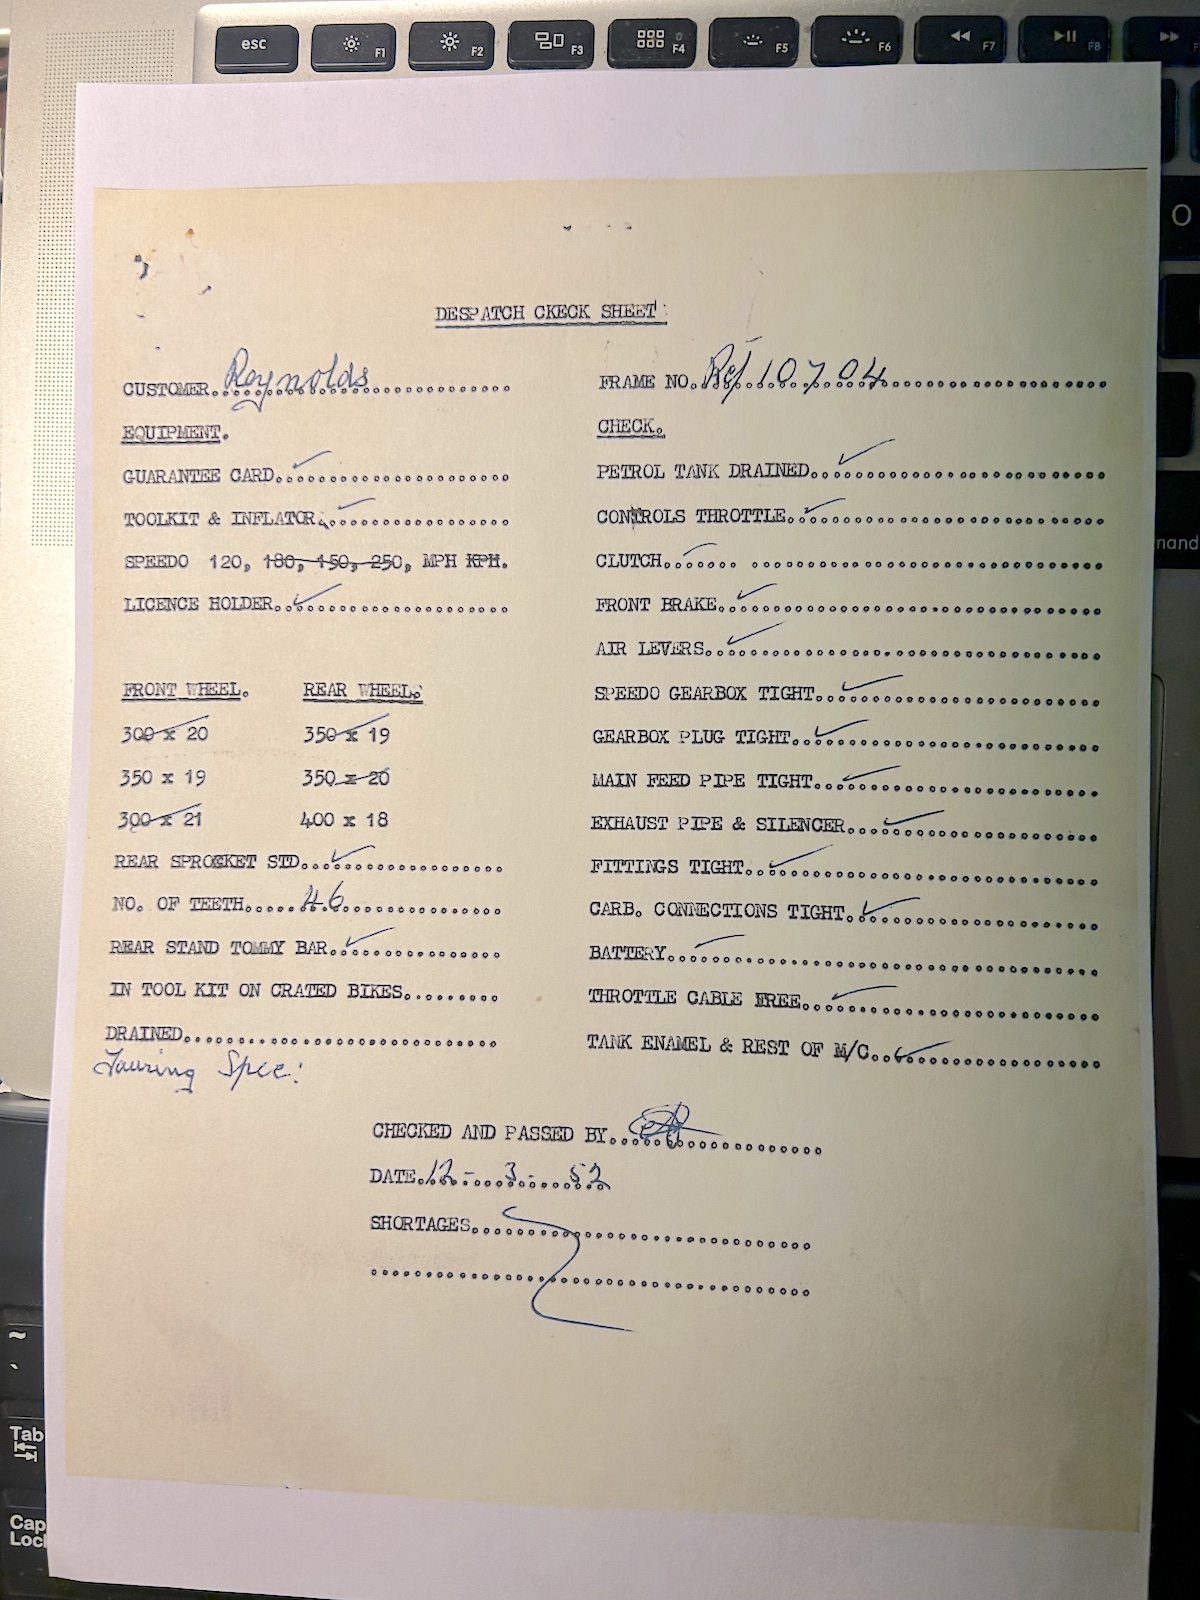 esc F1 F2 F3 F4 F5 F6 F7 F8
O
mand
DESPATCH CKECK SHEET
CUSTOMER Reynolds
FRAME NO. 10704
EQUIPMENT.
CHECK.
GUARANTEE CARD
PETROL TANK DRAINED
TOOLKIT & INFLATOR
CONTROLS THROTTLE
SPEEDO 120, 180, 150, 250, MPH KPH.
CLUTCH
LICENCE HOLDER
FRONT BRAKE
AIR LEVERS
FRONT WHEEL. REAR WHEEL
SPEEDO GEARBOX TIGHT
300 x 20 350 x 19
GEARBOX PLUG TIGHT
350 x 19 350 x 20
MAIN FEED PIPE TIGHT
300 x 21 400 x 18
EXHAUST PIPE & SILENCER
REAR SPROCKET STD
FITTINGS TIGHT
NO. OF TEETH 46
CARB. CONNECTIONS TIGHT
REAR STAND TOMMY BAR
BATTERY
IN TOOL KIT ON CRATED BIKES
THROTTLE CABLE FREE
DRAINED
TANK ENAMEL & REST OF M/C
Touring Spec:
CHECKED AND PASSED BY
DATE 12 - 3 - 52
SHORTAGES
~
Tab
Cap
Loc